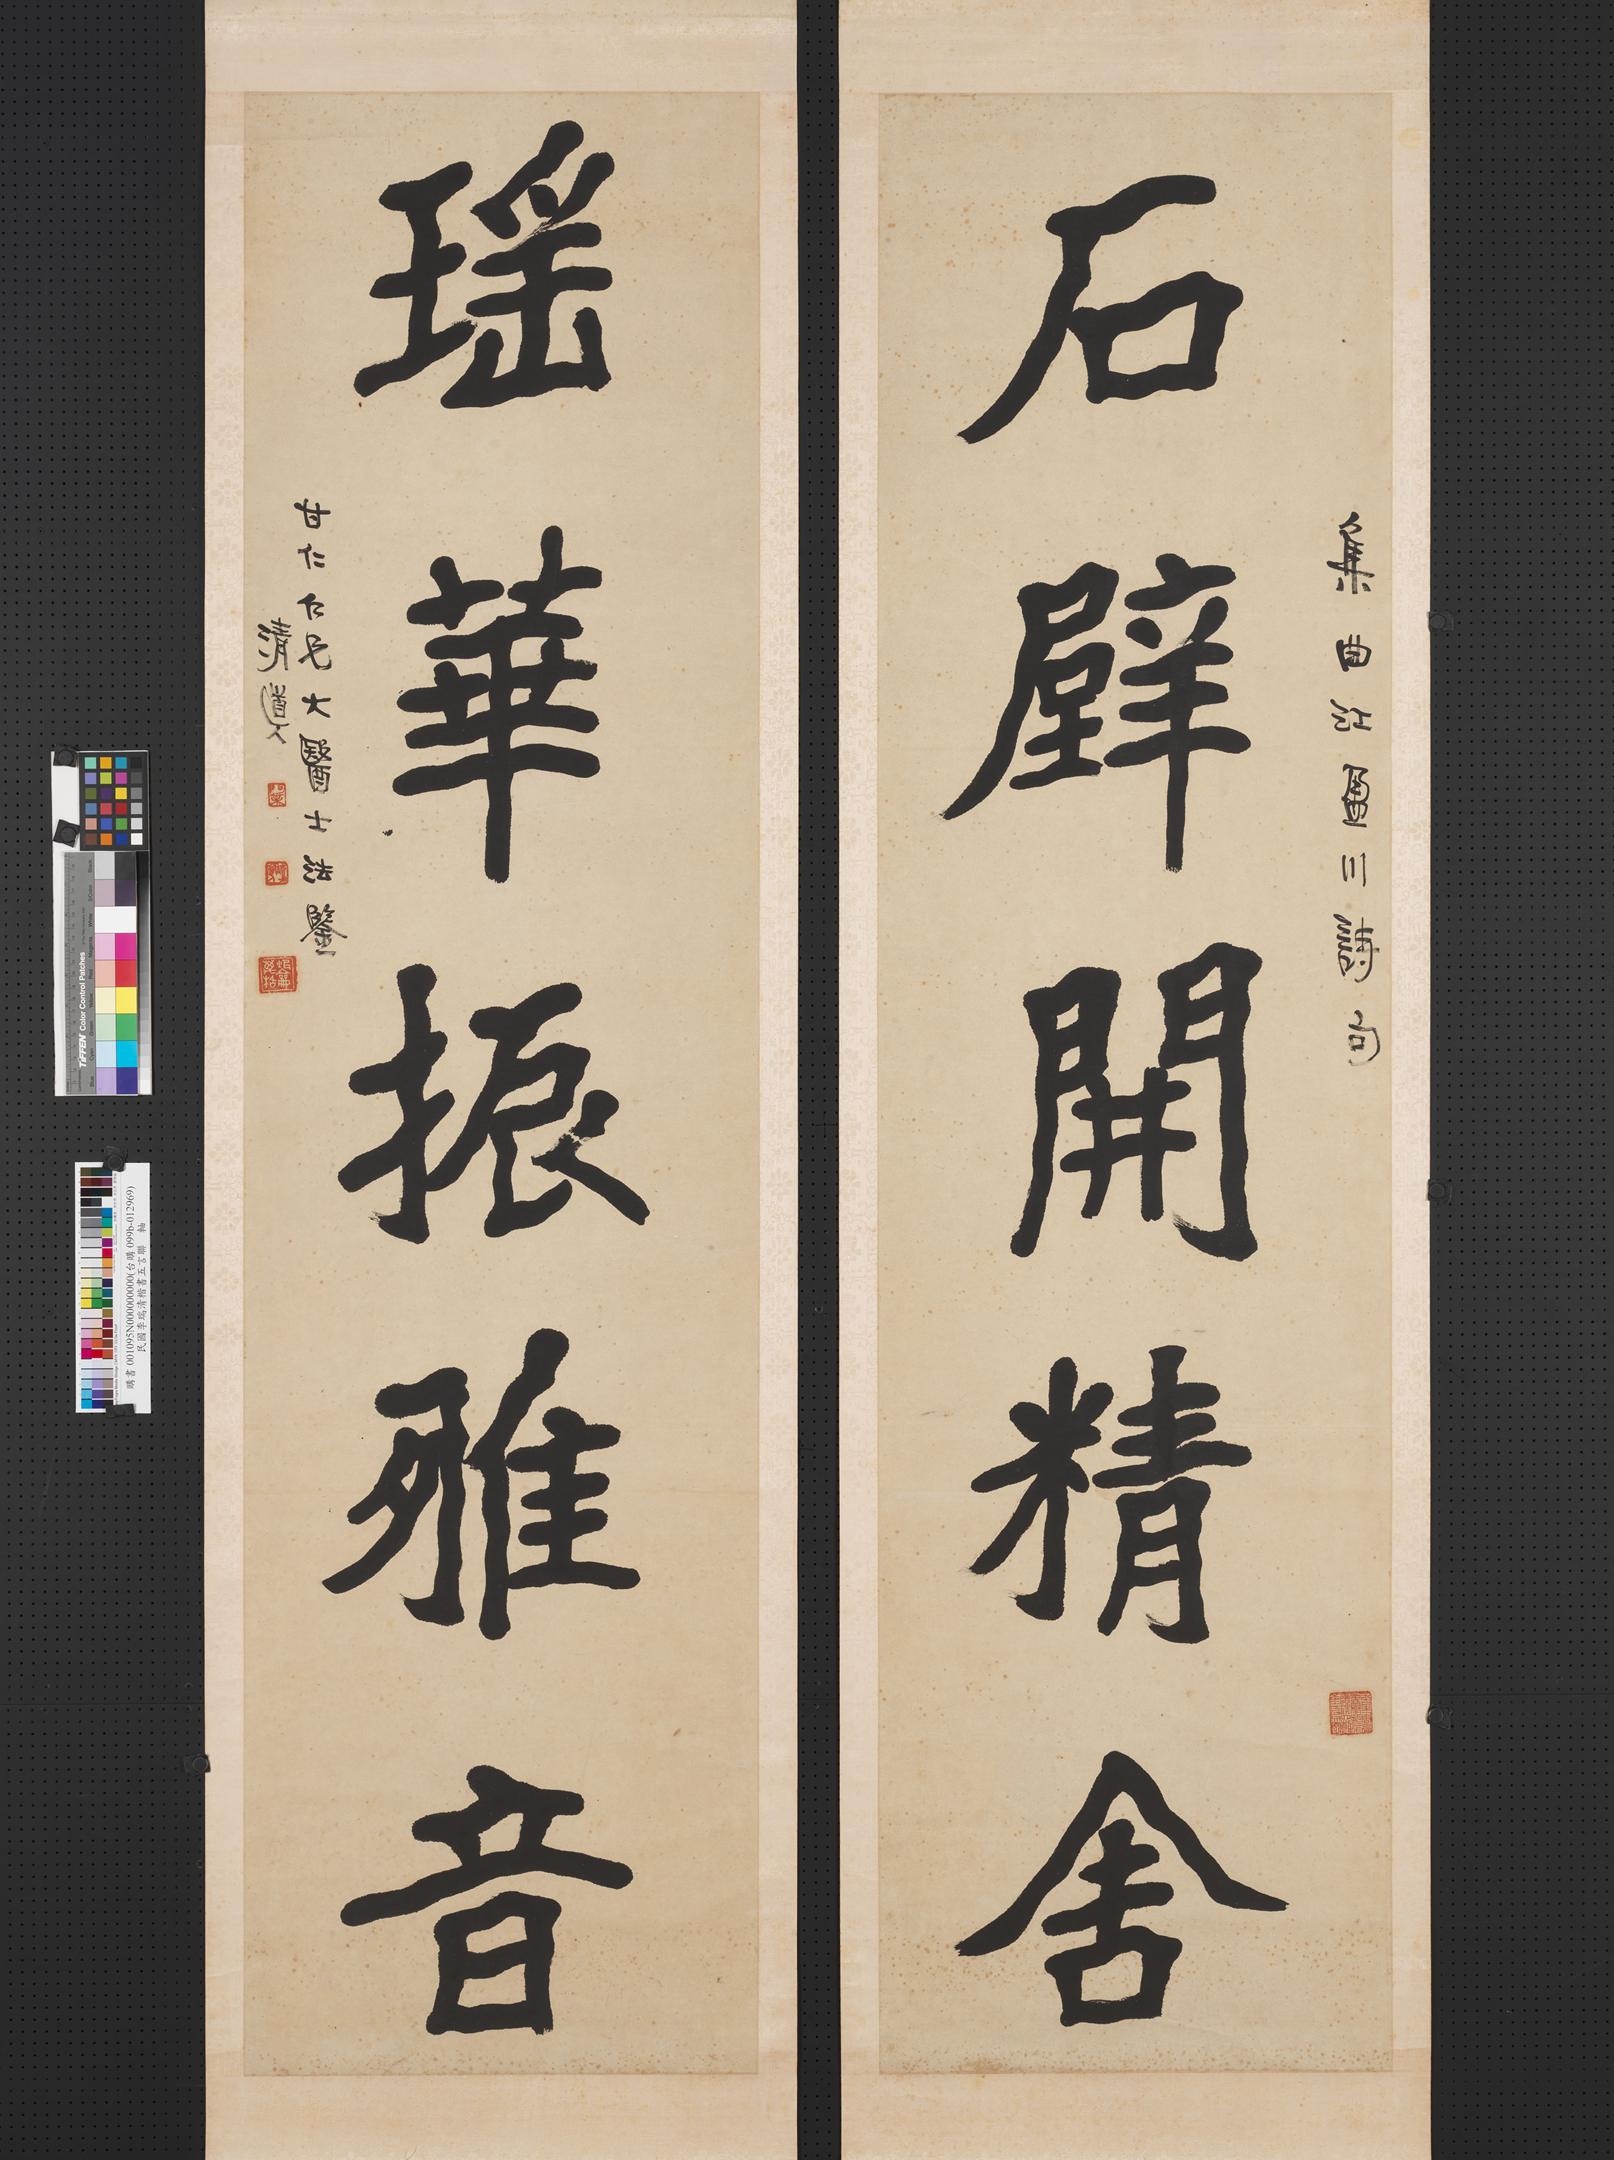 石壁開精舍
集曲江輞川詩句
瑤華振雅音
甘仁仁兄大醫士法鑒
清道人
TIFFEN Color Control Patches
購書 001095N000000000(台購 099b-012969)
民國李瑞清楷書五言聯 軸